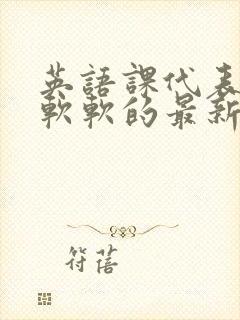 英語課代表
軟軟的最新
符蓓